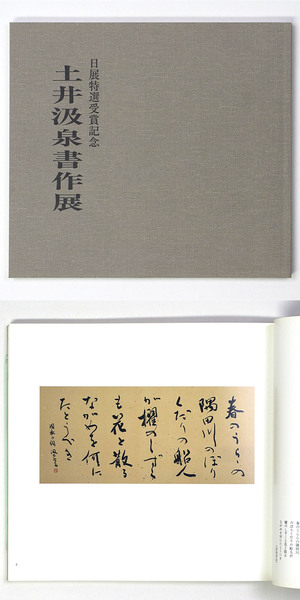 日展特選受賞記念
土井汲泉書作展
春のうらゝの
隅田川のぼり
くだりの船人
が櫂のしずく
も花と散る
ながめを何に
たとうべき